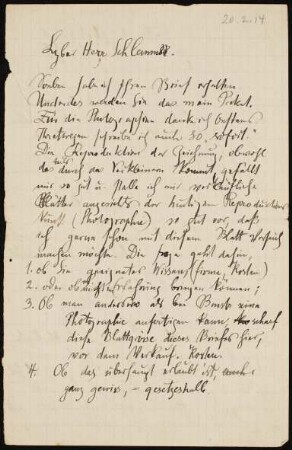 20. 2. 14
Lieber Herr Schlamm.
Soeben hab ich Ihren Brief erhalten
Unterdes werden Sie das mein Paket.
Für die Photographien danke ich bestens
schreibe ich auch so, sofort."
Die Reproduktion der Zeichnung, obwohl
das durch das Verkleinern kommt, gefällt
mir so gut u. stelle ich mir vor
Blätter angesichts der heutigen Reproduktions
Kunst (Photographie) so gut vor, daß
ich gerne schon mit diesem Blatt Versuch
machen möchte. Die Frage geht dahin,
1. ob Sie geeignetes Wissen, (Firma, Kosten)
2. oder ob in Erfahrung bringen können;
3. Ob man anderswo als bei eine
Photographie anfertigen kann, scharf
diese Blattgrösse dieses Briefes hier,
vor dem Verkauf. Kosten.
4. Ob das überhaupt erlaubt ist, auch
ganz gewiss, – gesetzeshalb